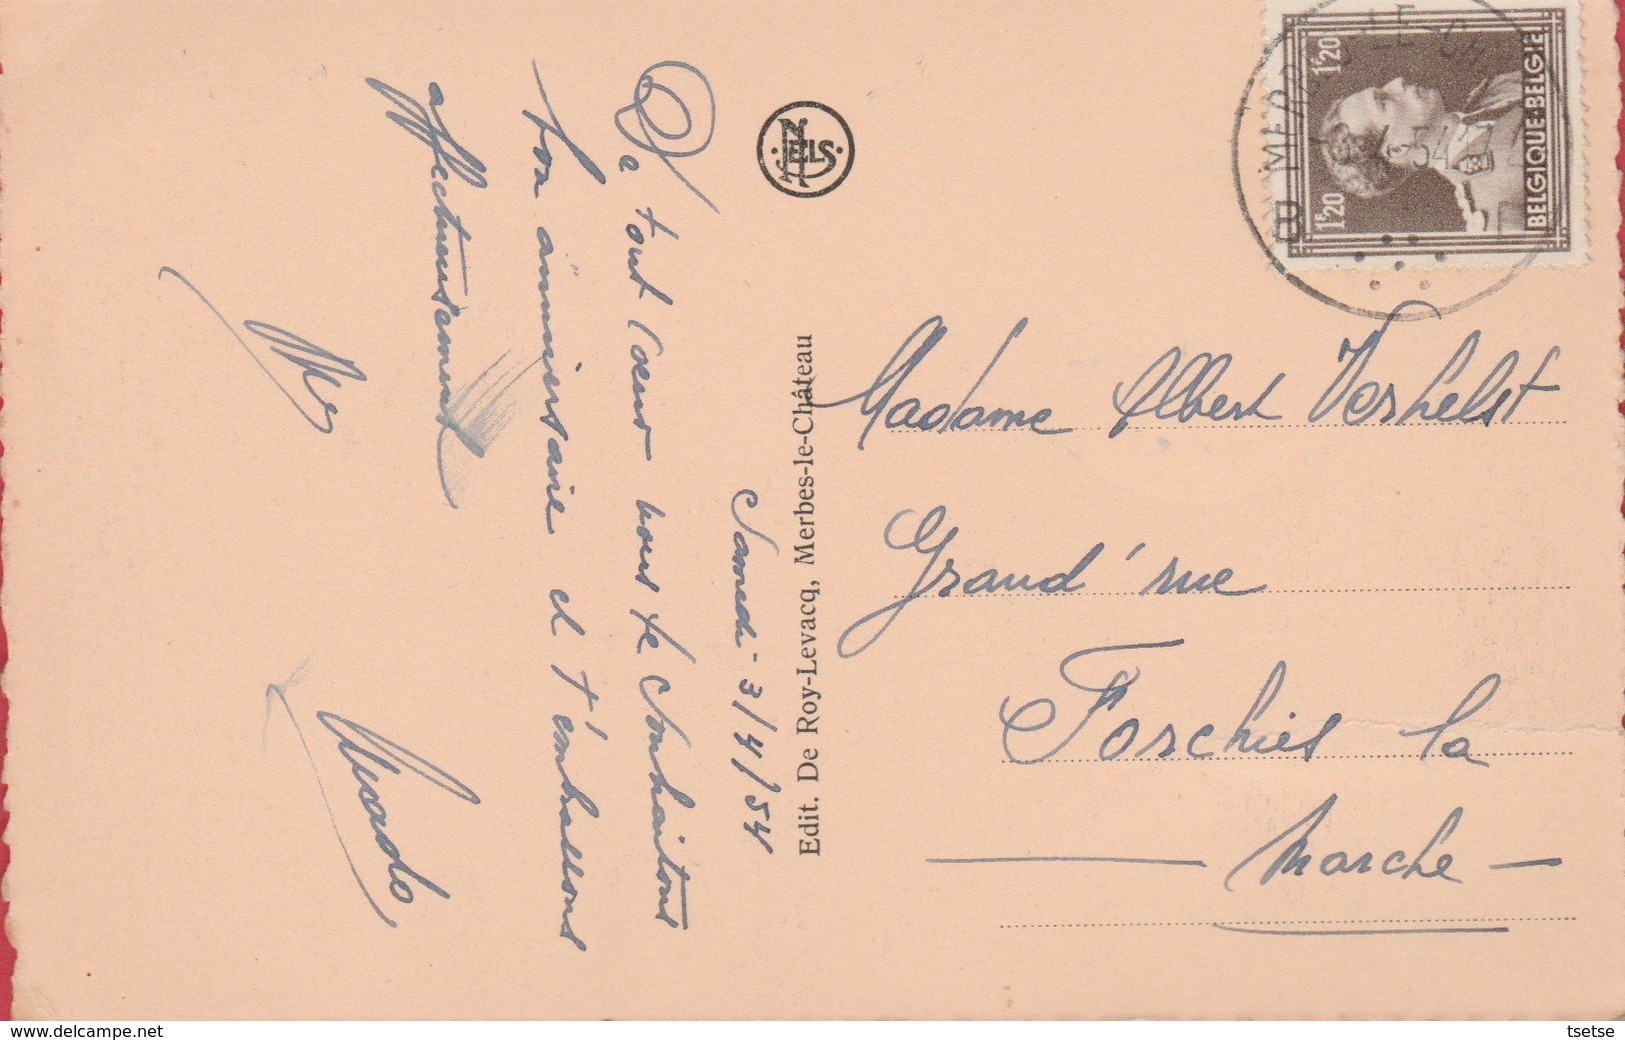 Samedi - 3/4/54
De tout Coeur nous te souhaitons
bon anniversaire et t'embrassons
affectueusement
NELS
Edit. De Roy-Levacq, Merbes-le-Château
1F20 1F20
BELGIQUE-BELGIE
Madame Albert Verhelst
Grand'rue
Forchies la
Marche
www.delcampe.net
tsetse